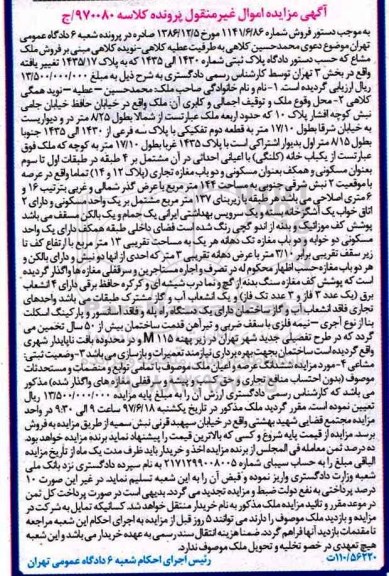 آگهی مزایده اموال غیرمنقول پرونده کلاسه ۹۷۰۰۸۰/ج
به موجب دستور فروش شماره ۱۱۴۱/۶/۸۶ مورخ ۱۳۸۶/۱۲/۵ صادره در پرونده شعبه ۶ دادگاه عمومی
تهران موضوع دعوی محمدحسین کلاهی به طرفیت عطیه کلاهی-نویده کلاهی مبنی بر فروش ملک
مشاع که حسب دستور دادگاه پلاک ثبتی شماره ۱۴۳۰ الی ۱۴۳۵ که به پلاک ۱۴۳۵/۱۷ تغییر یافته
واقع در بخش ۳ تهران توسط کارشناس رسمی دادگستری به شرح ذیل به مبلغ ۱۳/۵۰۰/۰۰۰/۰۰۰
ریال ارزیابی گردیده است. ۱-نام و نام خانوادگی صاحب ملک: محمدحسین-عطیه-نوید همگی
کلاهی ۲- محل وقوع ملک و توقیف اجمالی و کاربری آن: ملک واقع در خیابان حافظ خیابان جامی
نبش کوچه افشار پلاک ۱۰ که حدود اربعه ملک عبارتست از شمالا بطول ۸/۲۵ متر در و دیواریست
به خیابان شرقا بطول ۱۷/۱۰ متر به قطعه دوم تفکیکی با پلاک سه فرعی از ۱۴۳۰ الی ۱۴۳۵ جنوبا
بطول ۸/۱۵ متر اول بدیوار اشتراکی است با پلاک ۱۴۳۵ غربا بطول ۱۷/۱۰ متر به کوچه که ملک فوق
عبارتست از یکباب خانه (کلنگی) با اعیانی احداثی در آن مشتمل بر ۴ طبقه در طبقات اول تا سوم
بعنوان مسکونی و همکف بعنوان مسکونی و دو باب مغازه تجاری (پلاک ۱۲ و ۱۴) تماما واقع در عرصه
با موقعیت ۲ نبش شرقی جنوبی به مساحت ۱۴۰ متر مربع با عرض گذر شمالی و غربی بترتیب ۱۶ و
۶ متری اصلاحی می باشد هر طبقه با زیربنای ۱۳۷ متر مربع مشتمل بر یک واحد مسکونی و دارای ۲
اتاق خواب یک آشپزخانه بسته و یک سرویس بهداشتی ایرانی یک حمام و یک بالکن مسقف می باشد
پوشش کف موزائیک و بدنه از اندو گچی رنگ شده است فضای داخلی طبقه همکف دارای یک واحد
مسکونی دو خوابه و دو باب مغازه تک دهانه هر یک به مساحت تقریبی ۱۳ متر مربع با ارتفاع کف تا
زیر سقف تقریبی برابر ۳/۱۰ متر با عرض دهانه تقریبی ۳ متر که احدی از آنها دو نبش و دارای بالکن و
هر دو باب مغازه حسب اظهار محکوم له در تصرف و اجاره مستاجرین و سرقفلی مغازه ها واگذار گردیده
است که پوشش کف مغازه سنگ بدنه از گچ و نما درب شیشه ای و کرکره حفاظ برقی دارای ۴ انشعاب
برق (یک عدد ۳ فاز و ۳ عدد تک فاز) و یک انشعاب آب و گاز مشترک طبقات می باشد واحدهای
تجاری فاقد انشعاب آب و گاز ساختمان دارای یک دستگاه راه پله و فاقد آسانسور و پارکینگ اسکلت
بنا از نوع آجری-نیمه فلزی با سقف ضربی و تیرآهن قدمت ساختمان بیش از ۵۰ سال تخمین می
گردد که در طرح تفضیلی جدید شهر تهران در زیر پهنه M ۱۱۵ و در محدوده بافت ناپایدار شهری
واقع گردیده است ساختمان بجهت بهره برداری نیازمند تعمیرات و بازسازی می باشد ۳-وضعیت ثبتی:
مشاعی ۴-مورد مزایده: ششدانگ عرصه و اعیان ملک موصوف با تمامی توابع و منضمات و مستحدثات
موصوف (بدون احتساب منافع تجاری و حق کسب و پیشه و سرقفلی مغازه های واگذار شده) مذکور
می باشد که کارشناس رسمی دادگستری ارزش آن را به مبلغ پایه مزایده ۱۳/۵۰۰/۰۰۰/۰۰۰ ریال
تعیین نموده است. مقرر گردید ملک مذکور در تاریخ یکشنبه ۹۷/۶/۱۸ ساعت ۹ الی ۹:۳۰ در واحد
مزایده مجتمع قضایی شهید بهشتی واقع در خیابان سپهبد قرنی نبش سمیه از طریق مزایده به فروش
برسد. مزایده از قیمت پایه شروع و کسی که بالاترین قیمت را پیشنهاد نماید برنده مزایده خواهد بود
ده درصد ثمن معامله فی المجلس از برنده مزایده اخذ و خریدار باید ظرف مدت یک ماه از تاریخ مزایده
الباقی مبلغ را به حساب سیبای شماره ۲۱۷۱۲۹۹۰۰۸۰۰۵ به نام سپرده دادگستری نزد بانک ملی
شعبه وزارت دادگستری واریز نموده و قبض آن را به این شعبه تسلیم نماید. در غیر این صورت ۱۰
درصد پرداختی به نفع دولت ضبط و مزایده تجدید می گردد. بدیهی است در صورت پرداخت کل ثمن
در موعد مقرر و تائید مزایده ملک مذکور به نام خریدار منتقل خواهد شد. کسانیکه تمایل به شرکت در
مزایده و بازدید ملک موصوف را دارند می توانند ۵ روز قبل از مزایده به اجرای احکام این شعبه مراجعه
تا مقدمات بازدید آنها فراهم گردد. ضمنا هزینه انتقال سند رسمی به عهده خریدار می باشد و این شعبه
هیچ تعهدی در خصو تخلیه و تحویل ملک موصوف ندارد.
۱۱۰/۵۶۲۲۰ت رئیس اجرای احکام شعبه ۶ دادگاه عمومی تهران